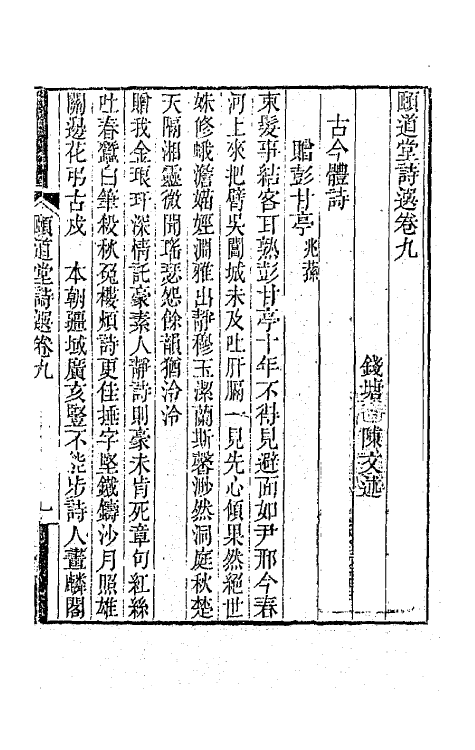 頤道堂詩選卷九
錢塘 陳文述
古今體詩
贈彭甘亭兆蓀
束髮事結客耳熟彭甘亭十年不得見避面如尹邢今春
河上來把臂吳閶城未及吐肝膈一見先心傾果然絕世
姝修蛾澹娥娙淵雅出靜穆玉潔蘭斯馨渺然洞庭秋楚
天隔湘靈微聞瑤瑟怨餘韻猶泠泠
贈我金琅玕深情託豪素人靜詩則豪未肯死章句紅絲
吐春蠶白筆殺秋兔樓煩詩更佳捶字堅鐵鑄沙月照雄
關邊花弔古戍 本朝疆域廣亥豎不能步詩人畫麟閣
頤道堂詩選卷九
一